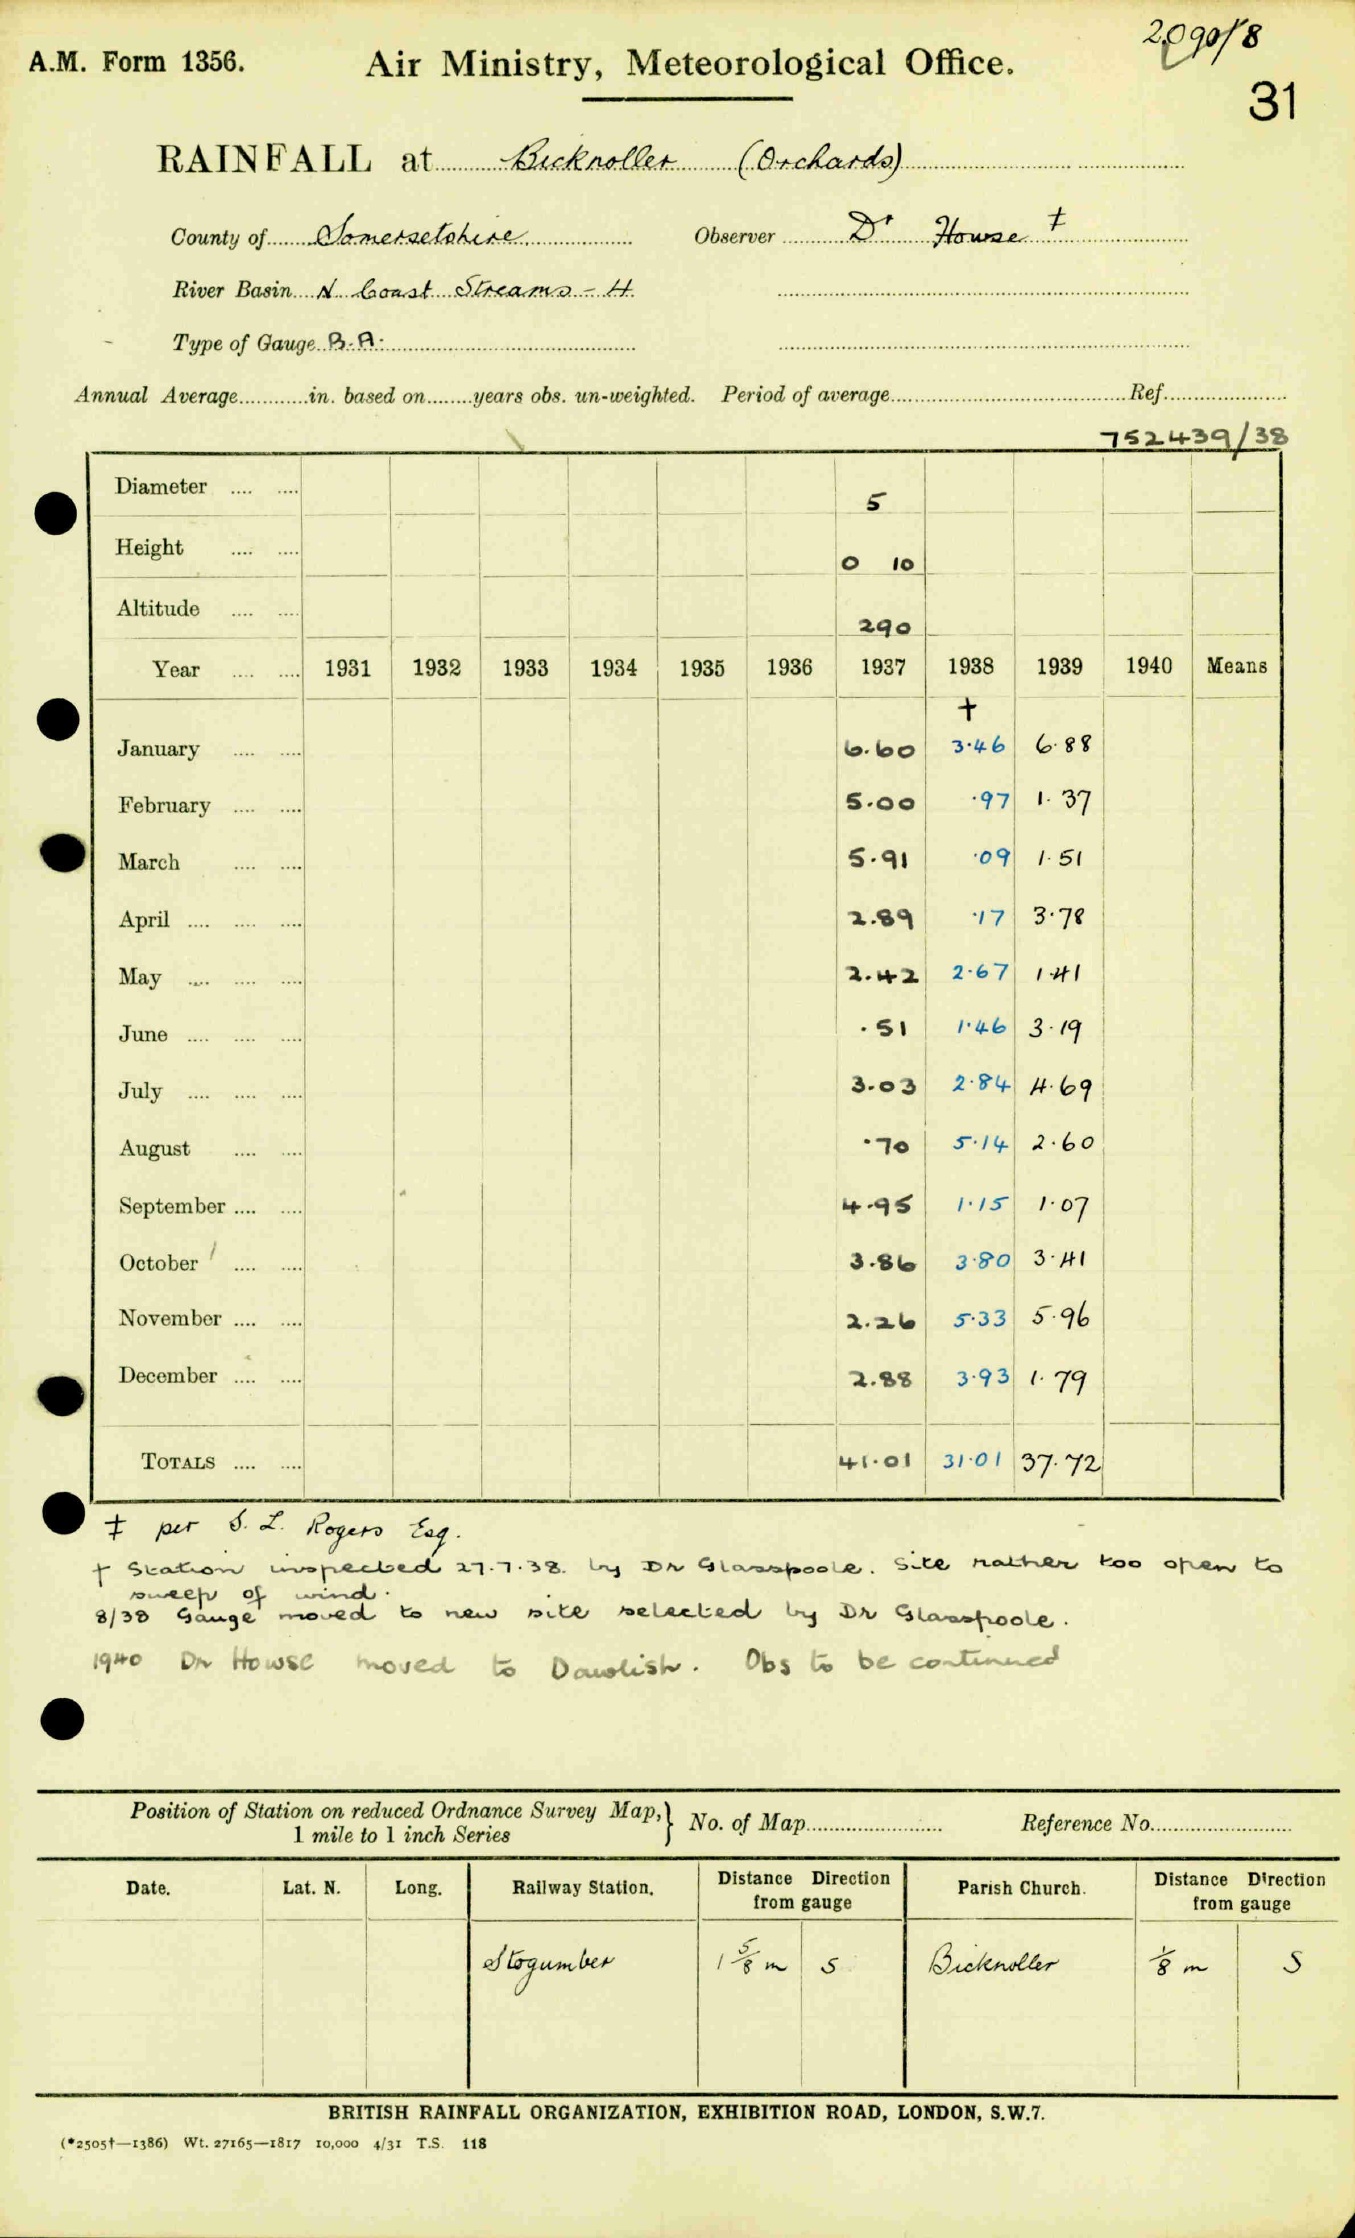 2090/8
A.M. Form 1356. Air Ministry, Meteorological Office.
31
RAINFALL at Bicknoller (Orchards)
County of Somersetshire Observer Dr Howse ‡
River Basin N Coast Streams - 4
Type of Gauge B.A.
Annual Average in. based on years obs. un-weighted. Period of average Ref.
752439/38
Diameter 5
Height 0 10
Altitude 290
Year 1931 1932 1933 1934 1935 1936 1937 1938 1939 1940 Means
†
January 6.60 3.46 6.88
February 5.00 .97 1.37
March 5.91 .09 1.51
April 2.89 .17 3.78
May 2.42 2.67 1.41
June .51 1.46 3.19
July 3.03 2.84 4.69
August .70 5.14 2.60
September 4.95 1.15 1.07
October 3.86 3.80 3.41
November 2.26 5.33 5.96
December 2.88 3.93 1.79
TOTALS 41.01 31.01 37.72
‡ per S. L. Rogers Esq.
† Station inspected 27.7.38. by Dr Glasspoole. Site rather too open to
sweep of wind.
8/38 Gauge moved to new site selected by Dr Glasspoole.
1940 Dr Howse moved to Dawlish. Obs to be continued
Position of Station on reduced Ordnance Survey Map, } No. of Map Reference No.
1 mile to 1 inch Series
Date. Lat. N. Long. Railway Station. Distance Direction from gauge Parish Church. Distance Direction from gauge
Stogumber 1 5/8 m S Bicknoller 1/8 m S
BRITISH RAINFALL ORGANIZATION, EXHIBITION ROAD, LONDON, S.W.7.
(*2505†—1386) Wt. 27165—1817 10,000 4/31 T.S. 118